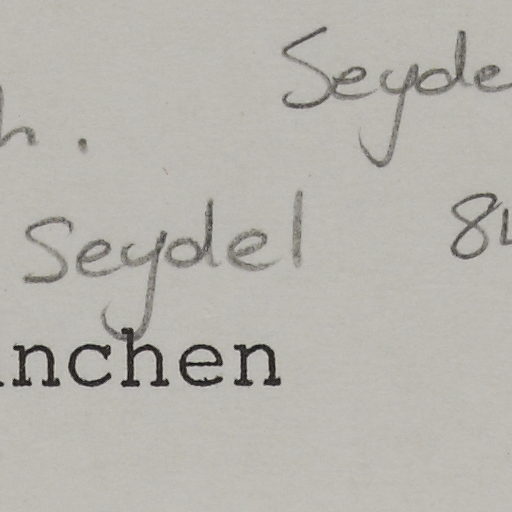 Seyde
h.
Seydel 84
nchen